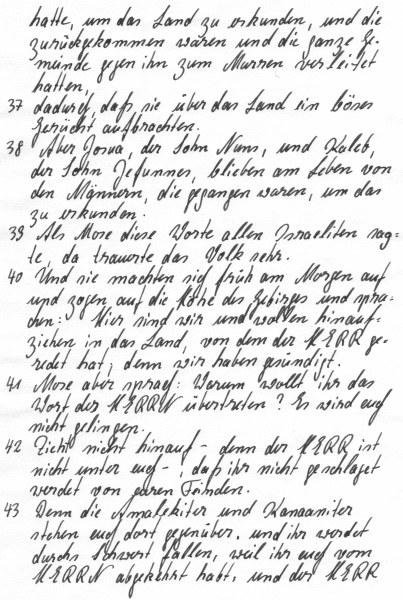 hatte, um das Land zu erkunden, und die
zurückgekommen waren und die ganze Ge-
meinde gegen ihn zum Murren verleitet
hatten,
37 dadurch, daß sie über das Land ein böses
Gerücht aufbrachten.
38 Aber Josua, der Sohn Nuns, und Kaleb,
der Sohn Jefunnes, blieben am Leben von
den Männern, die gegangen waren, um das
zu erkunden.
39 Als Mose diese Worte allen Israeliten sag=
te, da trauerte das Volk sehr.
40 Und sie machten sich früh am Morgen auf
und zogen auf die Höhe des Gebirges und spra=
chen: Hier sind wir und wollen hinauf=
ziehen in das Land, von dem der HERR ge-
redet hat; denn wir haben gesündigt.
41 Mose aber sprach: Warum wollt ihr das
Wort der HERRN übertreten? Es wird euch
nicht gelingen.
42 Zieht nicht hinauf – denn der HERR ist
nicht unter euch –, daß ihr nicht geschlaget
werdet von euren Feinden.
43 Denn die Amalekiter und Kanaaniter
stehen euch dort gegenüber, und ihr werdet
durchs Schwert fallen, weil ihr euch vom
HERRN abgekehrt habt, und der HERR